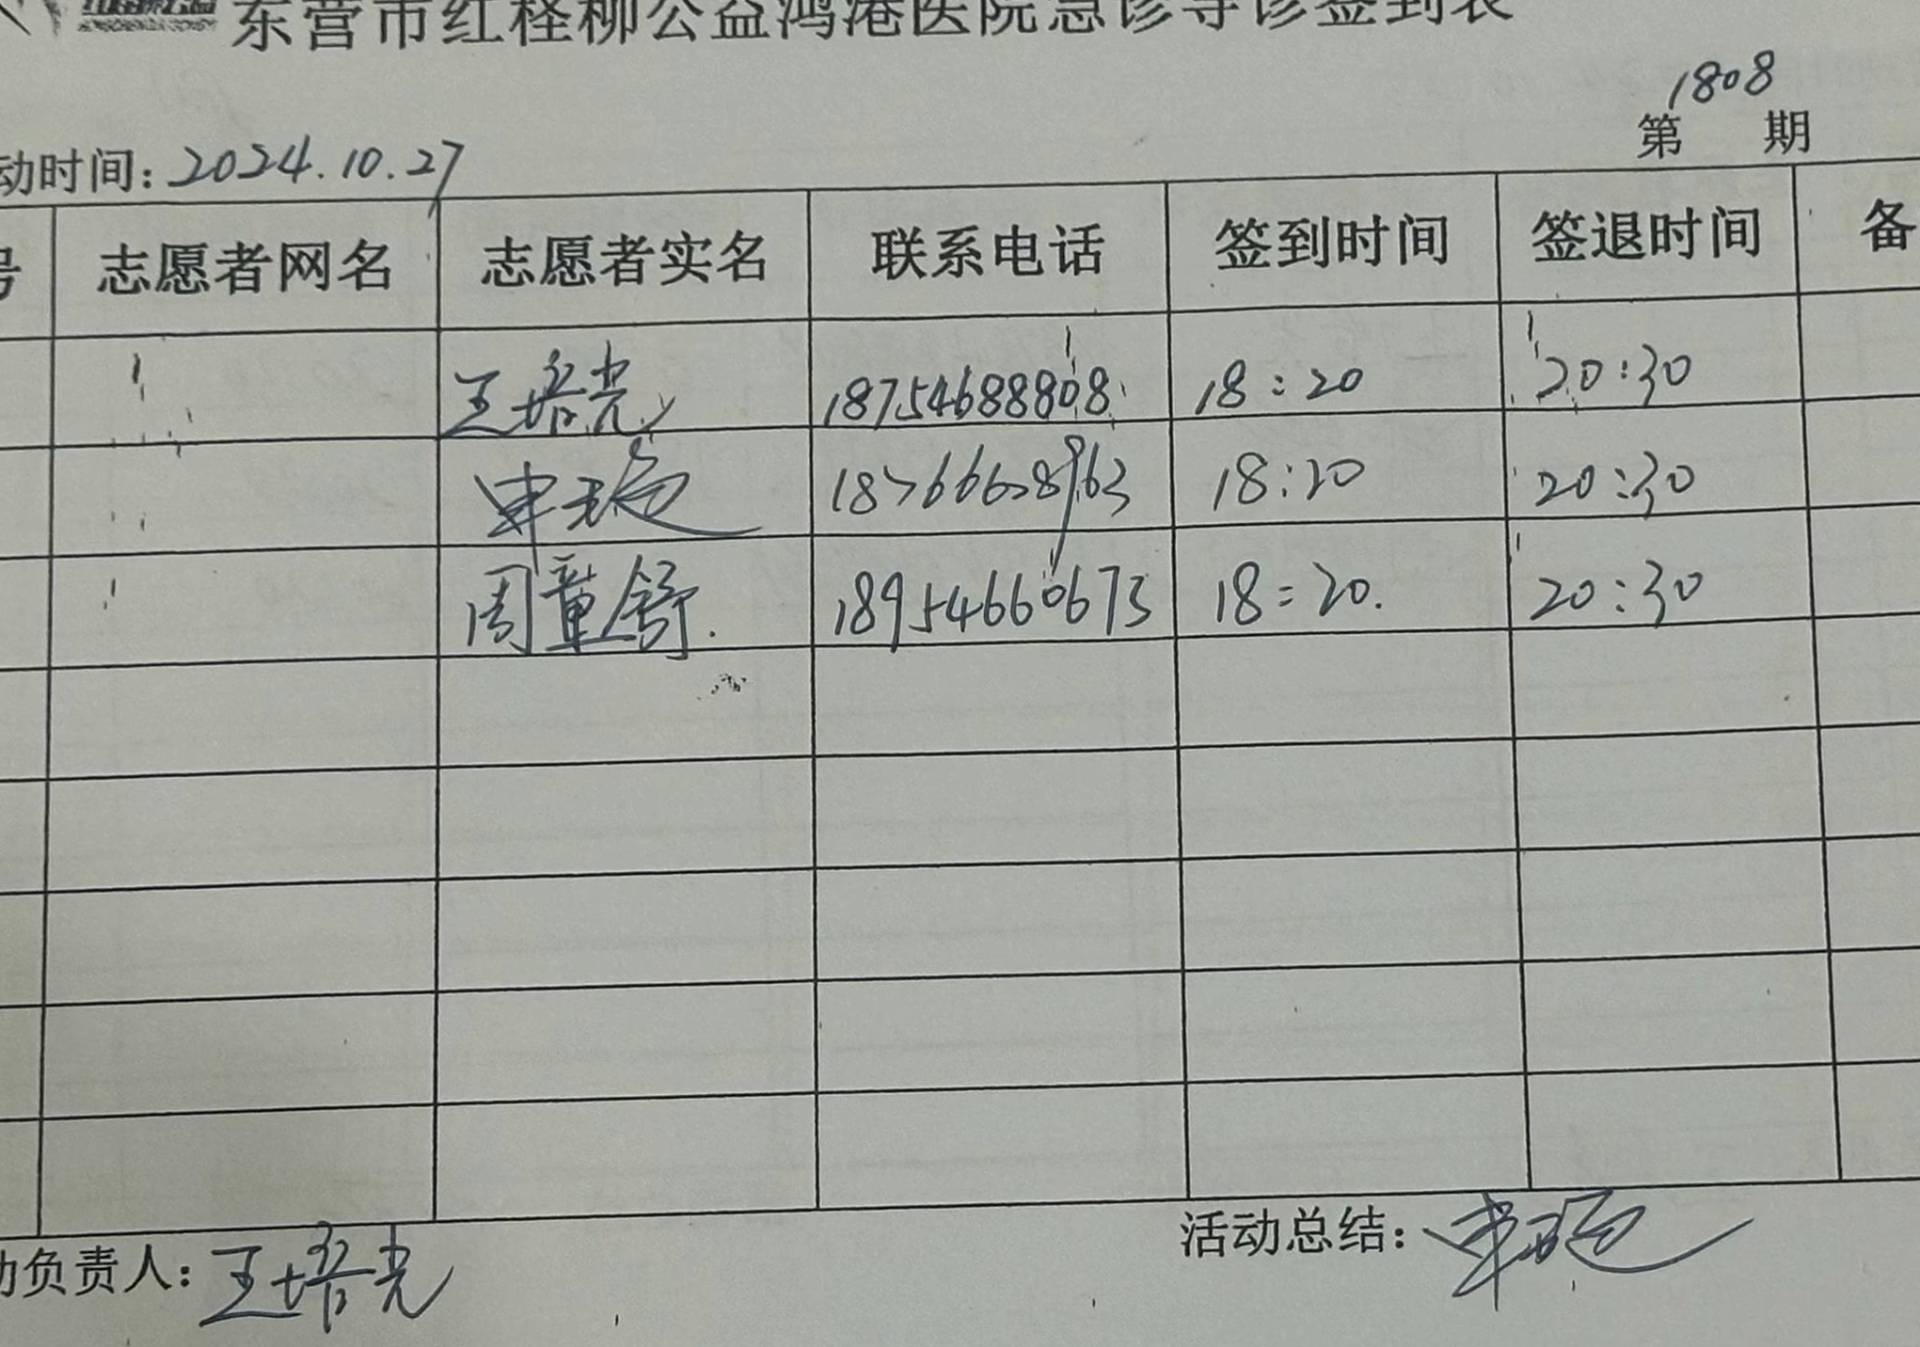 东营市红柽柳公益鸿港医院急诊导诊签到表
1808
第 期
动时间: 2024.10.27
号 志愿者网名 志愿者实名 联系电话 签到时间 签退时间 备
王培光 18754688808 18:20 20:30
18:20 20:30
周童舒. 18954660673 18:20. 20:30
动负责人: 王培光 活动总结: